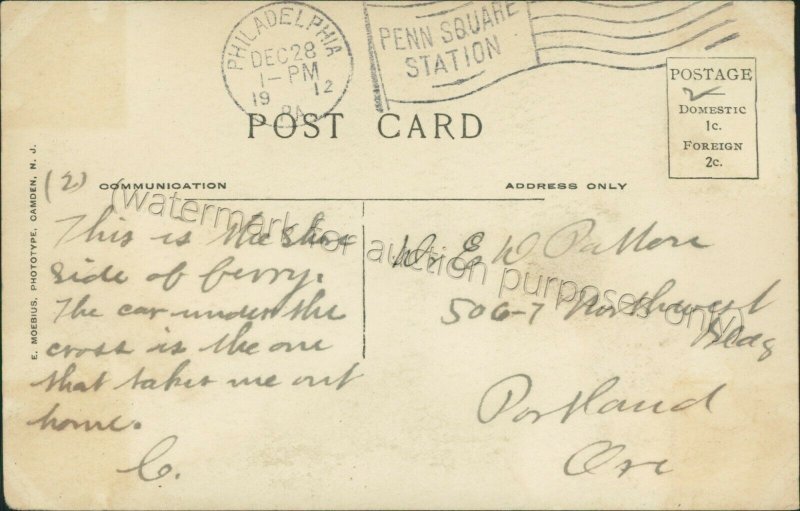 PHILADELPHIA
DEC 28
1-PM
19 12
PA.
PENN SQUARE
STATION
POST CARD
POSTAGE
DOMESTIC
1c.
FOREIGN
2c.
(2)
COMMUNICATION
ADDRESS ONLY
(watermark for auction purposes only)
E. MOEBIUS, PHOTOTYPE, CAMDEN, N. J.
This is the shore
side of ferry.
The car under the
cross is the one
that takes me out
home.
C.
E W
506-7 Northwest
Bldg
Portland
Ore